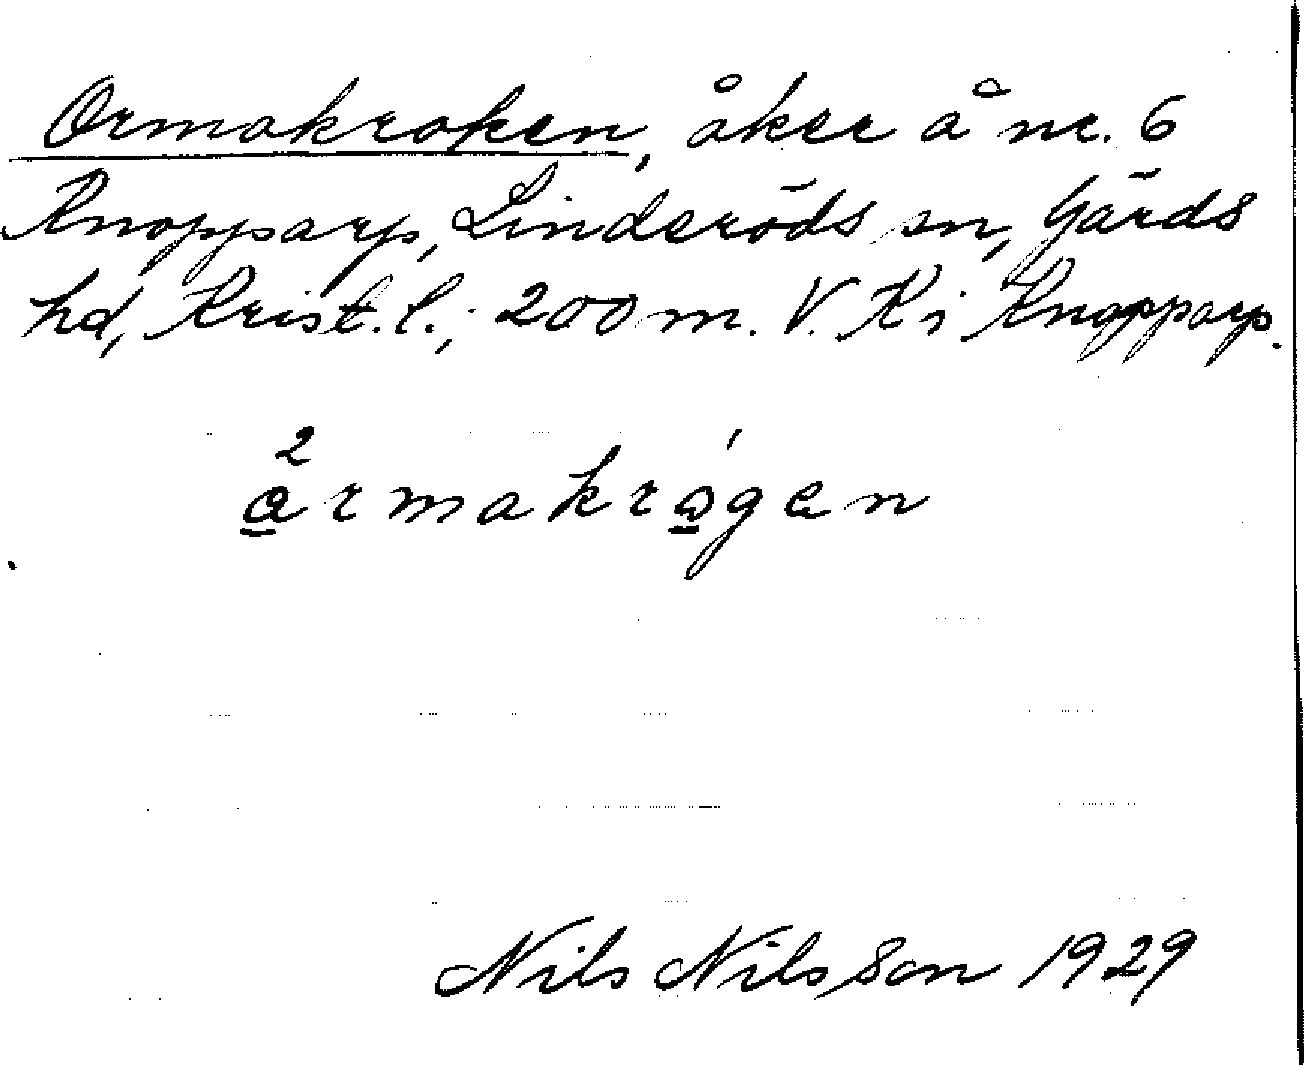 Ormakroken, åker å nr. 6
Knopparp, Linderöds sn, Gärds
hd, Krist. l.; 200 m. V. K i Knopparp.
2 ́
a̲rmakro̲gen
Nils Nilsson 1929